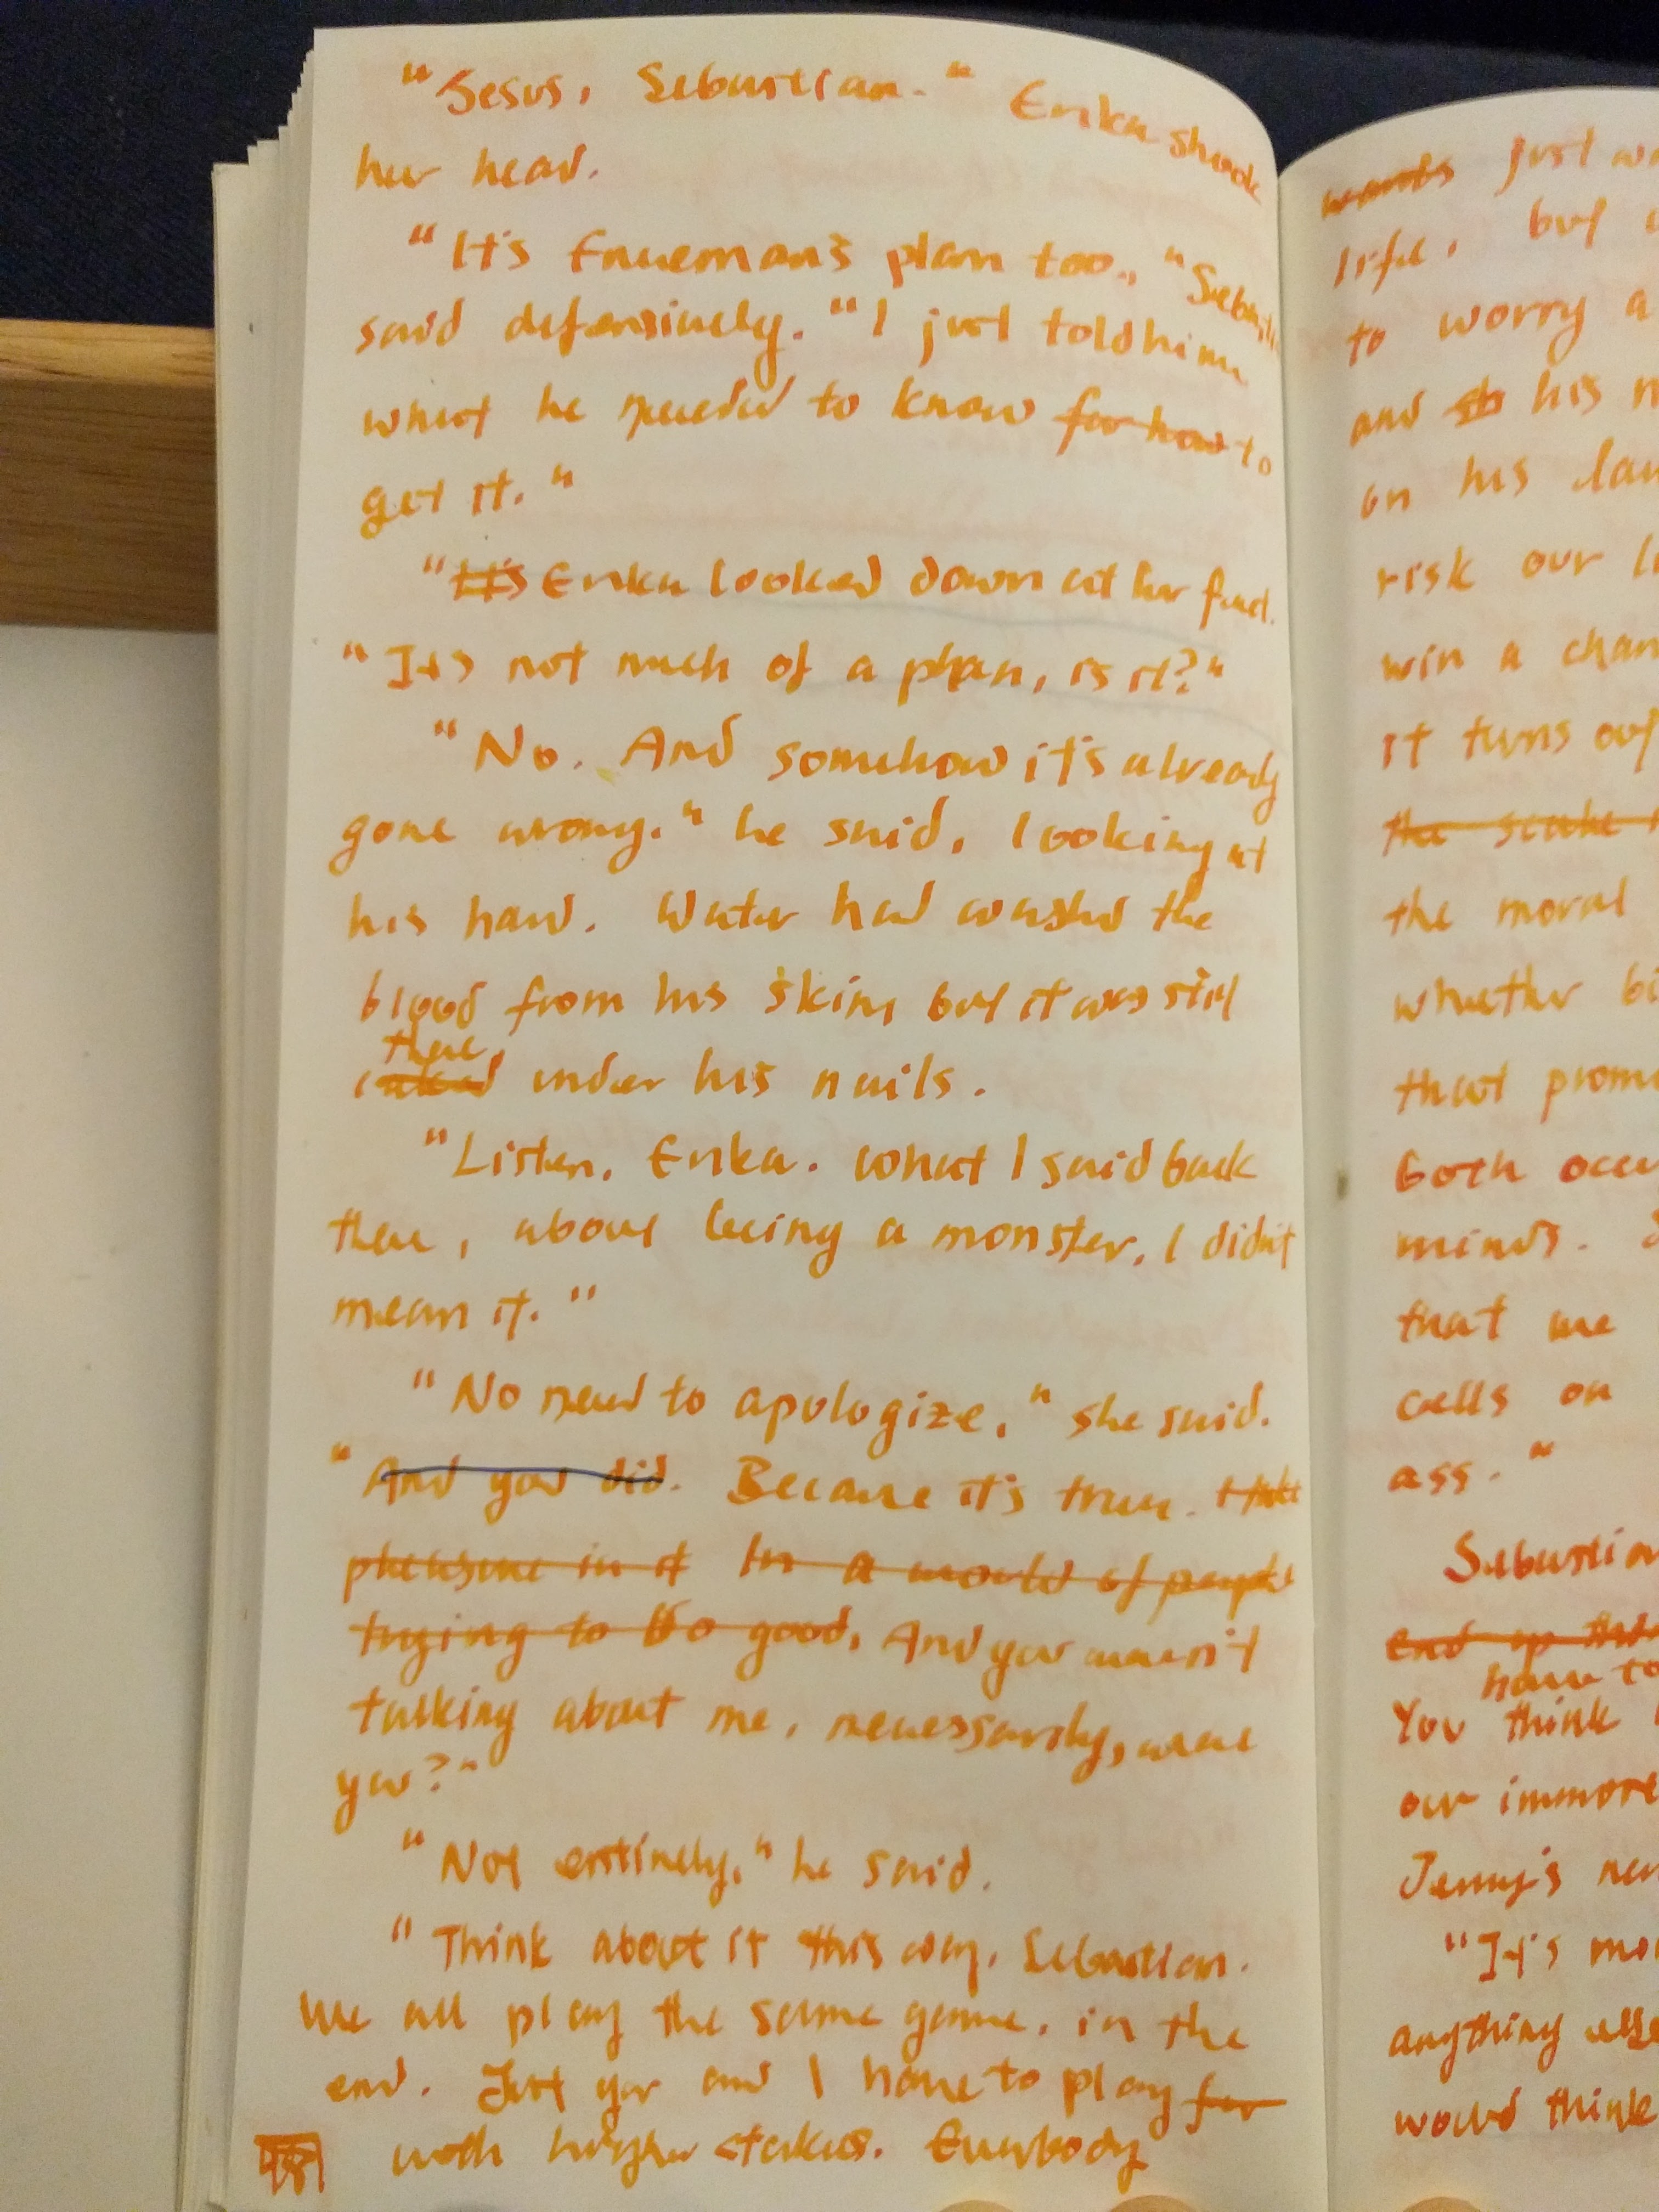 "Jesus, Sebastian." Erika shook
her head.
"It's Enneman's plan too," Sebastian
said defensively. "I just told him
what he needed to know for how to
get it."
"It's Erika looked down at her feet.
"It's not much of a plan, is it?"
"No. And somehow it's already
gone wrong." he said, looking at
his hand. Water had washed the
blood from his skin, but it was still
there
caked under his nails.
"Listen, Erika. What I said back
there, about being a monster, I didn't
mean it."
"No need to apologize," she said.
"And you did. Because it's true. I take
pleasure in it In a world of people
trying to do good, And you weren't
talking about me, necessarily, were
you?"
"Not entirely," he said.
"Think about it this way, Sebastian.
We all play the same game, in the
end. Just you and I have to play for
with higher stakes. Everybody
wants just
life, but
to worry a
and his
on his
risk our
win a
it turns out
the
the moral
whether
that
both
minds.
that me
cells on
ass."
Sebastian
end up
have to
You think
our
Jenny's
"It's
anything else
would think